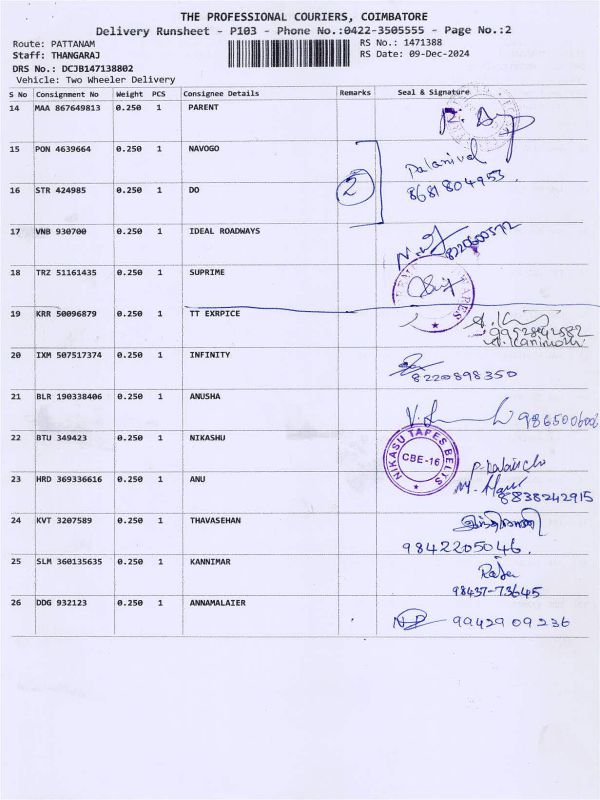 THE PROFESSIONAL COURIERS, COIMBATORE
Delivery Runsheet - P103 - Phone No.:0422-3505555 - Page No.:2
Route: PATTANAM
Staff: THANGARAJ
DRS No.: DCJB147138802
Vehicle: Two Wheeler Delivery
RS No.: 1471388
RS Date: 09-Dec-2024
S No Consignment No Weight PCS Consignee Details Remarks Seal & Signature
14 MAA 867649813 0.250 1 PARENT
15 PON 4639664 0.250 1 NAVOGO Palanivel
16 STR 424985 0.250 1 DO 2 8681804953
17 VNB 930700 0.250 1 IDEAL ROADWAYS
18 TRZ 51161435 0.250 1 SUPRIME
19 KRR 50096879 0.250 1 TT EXRPICE
A. Kanimozhi
20 IXM 507517374 0.250 1 INFINITY 8220898350
21 BLR 190338406 0.250 1 ANUSHA
22 BTU 349423 0.250 1 NIKASHU NIKASU TAPES BELTS CBE-16
23 HRD 369336616 0.250 1 ANU 8838242915
24 KVT 3207589 0.250 1 THAVASEHAN
9842205046.
25 SLM 360135635 0.250 1 KANNIMAR Raja
98437-73645
26 DDG 932123 0.250 1 ANNAMALAIER 99429 09236